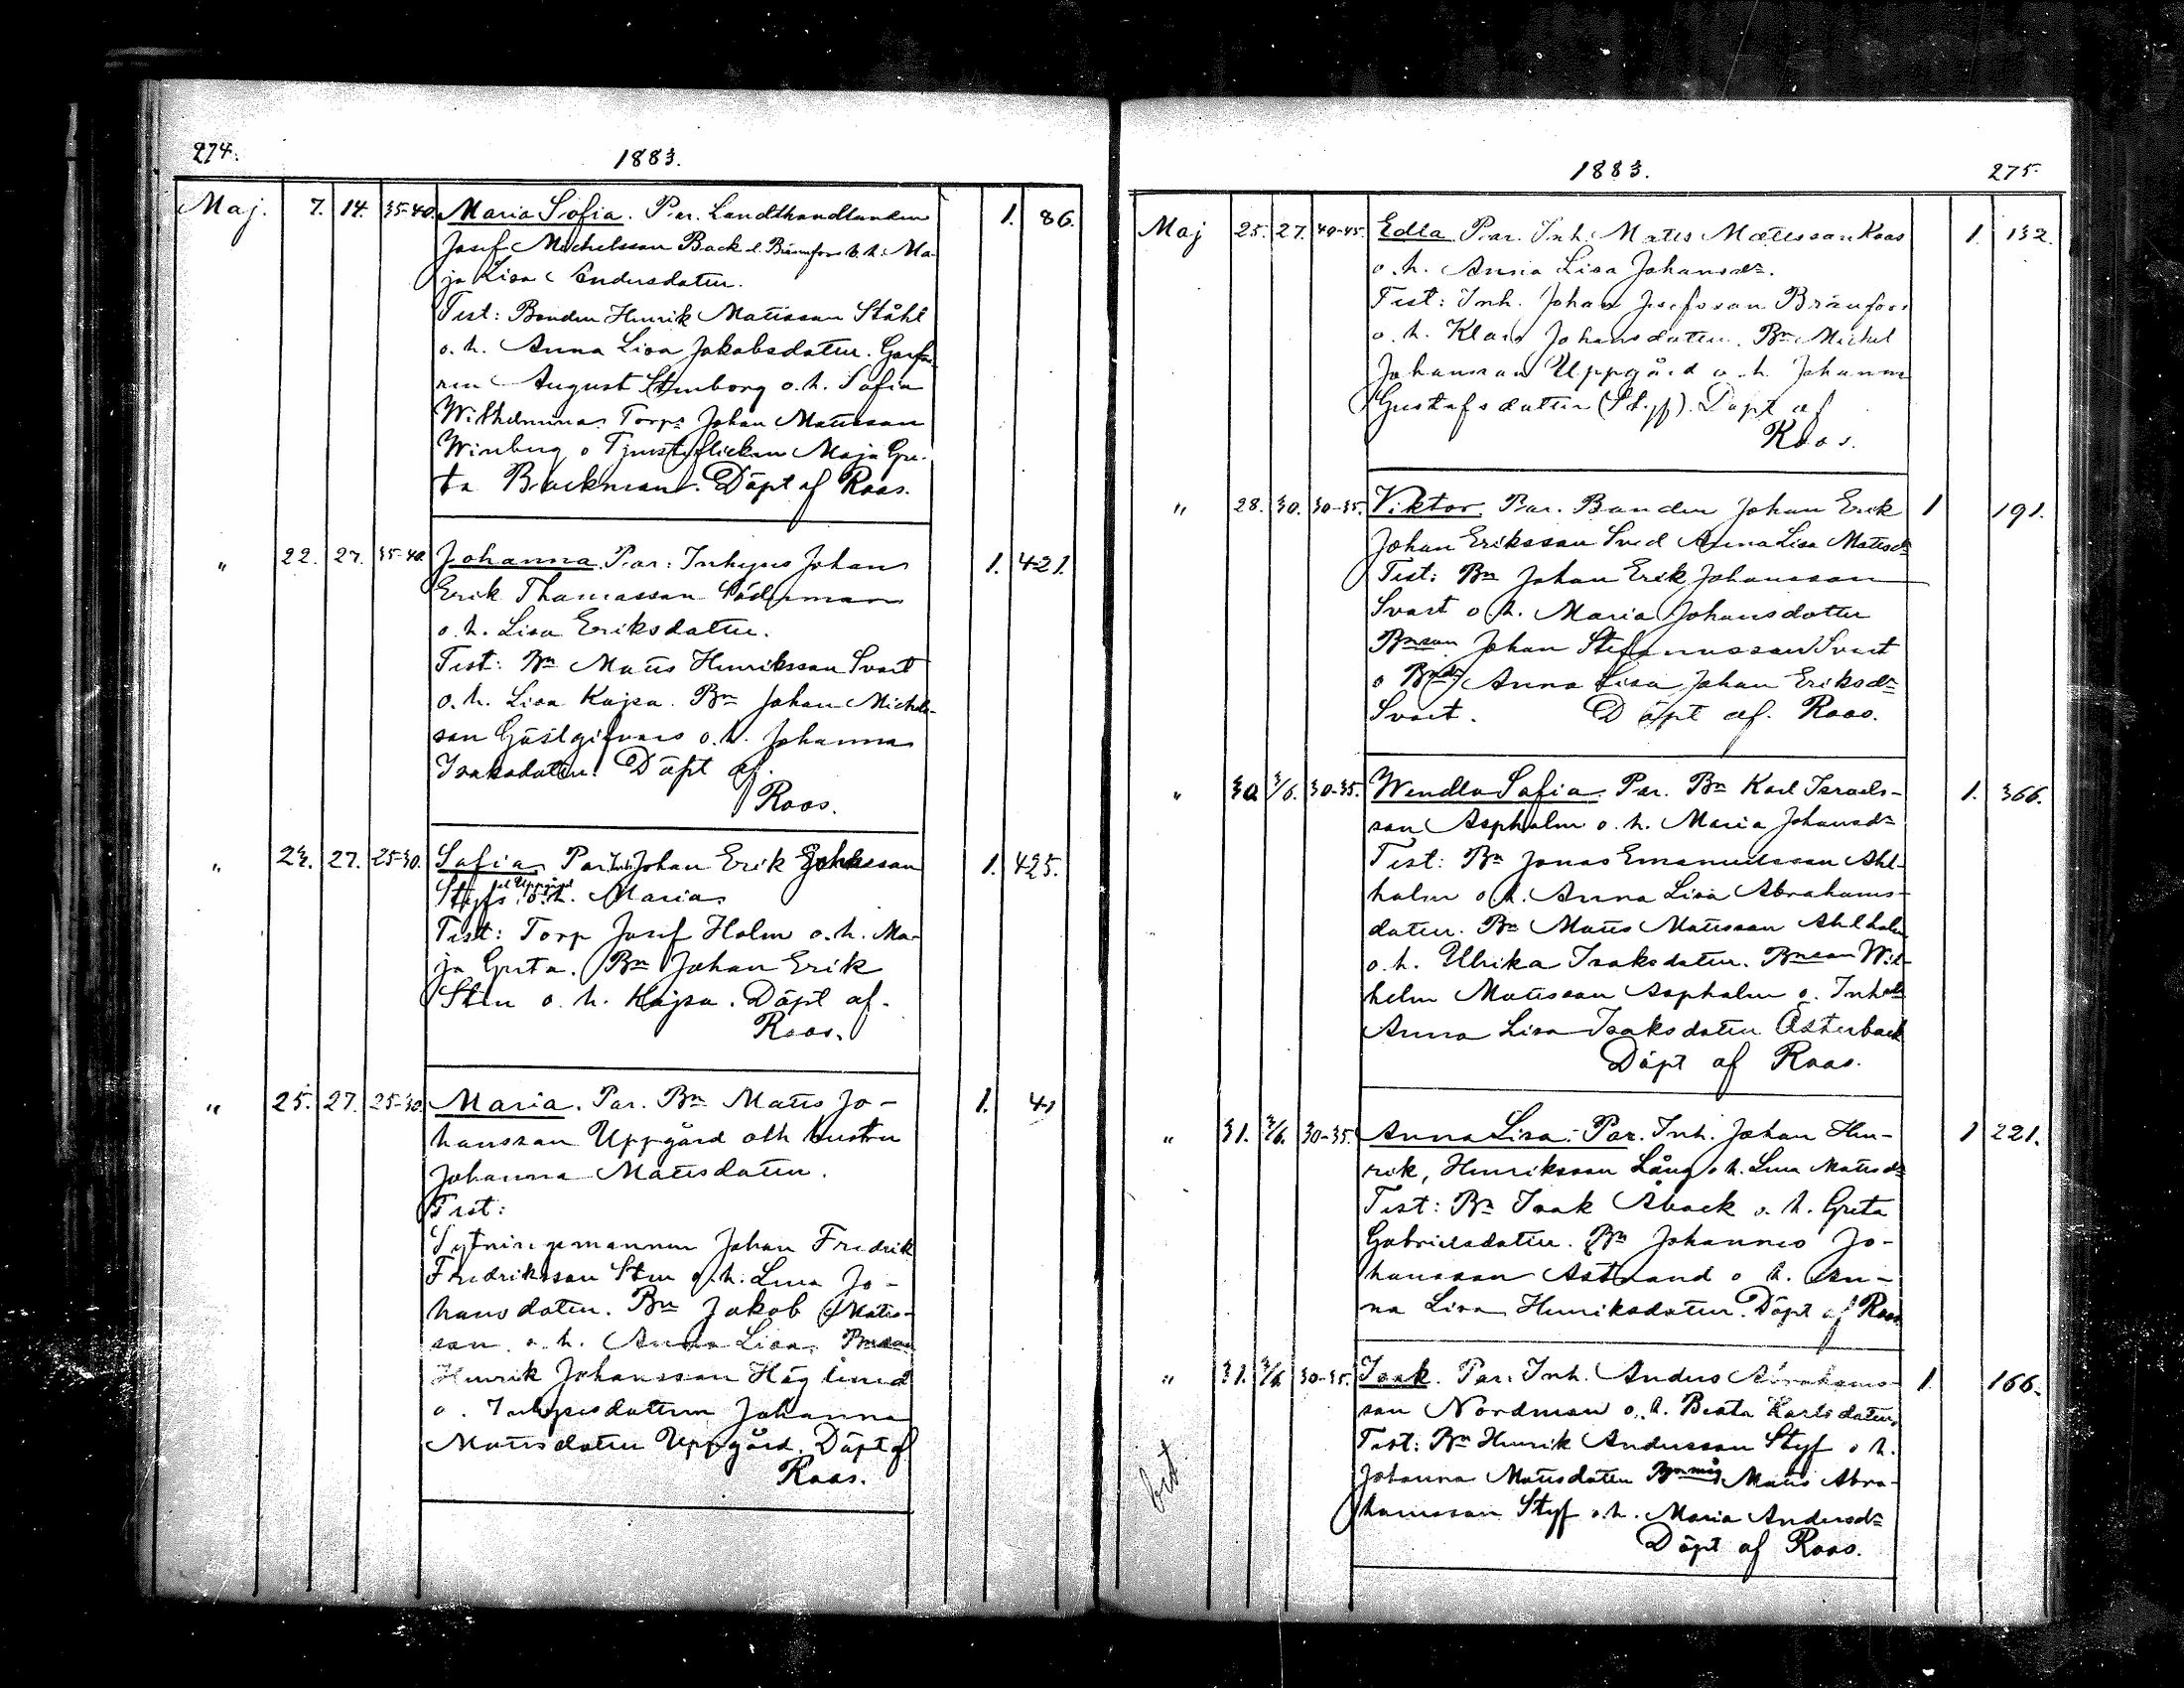 274.
1883.
Maj. 7. 14. 35-40. Maria Sofia. Par. Landthandlanden 1. 86.
Josef Michelsson Back d. Brännfors o. h. Ma-
ja Lisa Andersdotter.
Test: Bonden Henrik Matisson Ståhl
o. h. Anna Lisa Jakobsdotter. Garfva-
ren August Stenborg o. h. Sofia
Wilhelmina. Torpn Johan Mattsson
Winberg o Tjensteflickan Maja Gre-
ta Backman. Döpt af Roos.
" 22. 27. 35-40. Johanna. Par: Inhyses Johan 1. 421.
Erik Thomasson Söderman
o. h. Lisa Eriksdotter.
Test: Bn Matts Henriksson Svart
o. h. Lisa Kajsa. Bn Johan Michels-
son Gästgifvars o. h. Johanna
Isaksdotter. Döpt af.
Roos.
" 23. 27. 25-30. Sofia. Par. Inh. Johan Erik 1. 425.
Styfs d. Uppgård o. h. Maria.
Test: Torp Josef Holm o. h. Ma-
ja Greta. Bn Johan Erik
Sten o. h. Kajsa. Döpt af.
Roos.
" 25. 27. 25-30. Maria. Par. Bn Matts Jo- 1. 41
hansson Uppgård och hustru
Johanna Mattsdotter.
Test:
Sytningsmannen Johan Fredrik
Fredriksson Sten o. h. Lena Jo-
hansdotter. Bn Jakob Matts-
son o. h. Anna Lisa. Bnson
Henrik Johansson Häglund
o. Inhysesdottern Johanna
Mattsdotter Uppgård. Döpt af
Roos.
1883. 275.
Maj 25. 27. 40-45. Edla Par. Inh. Matts Mattsson Roos 1. 132.
o. h. Anna Lisa Johansdr.
Test: Inh. Johan Josefsson Brännfors
o. h. Klara Johansdotter. Bn Michel
Johansson Uppgård o. h. Johanna
Gustafsdotter (Styf). Döpt af
Roos.
" 28. 30. 30-35. Viktor. Par. Bonden Johan Erik 1 191.
Johan Eriksson Sved Anna Lisa Mattsdr
Test: Bn Johan Erik Johansson
Svart o. h. Maria Johansdotter
Bnson Johan Stefanusson Svart
o Bndr Anna Lisa Johan Eriksdr
Svart. Döpt af. Roos.
" 30. 3/6. 30-35. Wendla Sofia. Par. Bn Karl Israels- 1. 366.
son Aspholm o. h. Maria Johansdr
Test: Bn Jonas Emanuelsson Ahl-
holm o. h. Anna Lisa Abrahams-
dotter. Bn Matts Mattsson Ahlholm
o. h. Ulrika Isaksdotter. Bnson Wil-
helm Mattsson Aspholm o. Inhdr
Anna Lisa Isaksdotter Österback
Döpt af Roos.
" 31. 3/6. 30-35. Anna Lisa. Par. Inh. Johan Hen- 1 221.
rik, Henriksson Lång o. h. Lena Mattsdr
Test: Bn Isak Åback o. h. Greta
Gabrielsdotter. Bn Johannes Jo-
hansson Åstrand o. h. An-
na Lisa Henriksdotter. Döpt af Roos
" 31. 3/6. 30-35. Isak. Par. Inh. Anders Abrahams- 1. 166.
son Nordman o. h. Beata Karlsdotter,
Test: Bn Henrik Andersson Styf o h.
Johanna Mattsdotter Bnmåg Matts Abra-
hamsson Styf o. h. Maria Andersdr
Döpt af Roos.